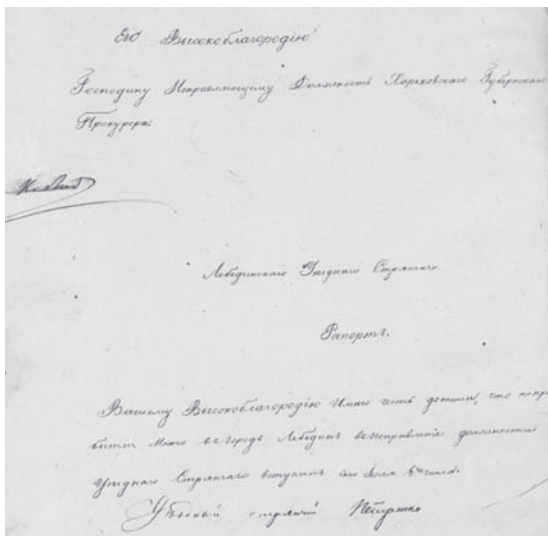 Его Высокоблагородію
Господину Исправляющему Должность Харьковскаго Губернскаго
Прокурора
Лебединскаго Уѣзднаго Стряпчаго.
Рапортъ.
Вашему Высокоблагородію Имѣю честь донести, что по
бытіи Моего въ Городъ Лебединъ въ исправленіе должности
Уѣзднаго Стряпчаго вступилъ сего Іюля числа.
Уѣздный стряпчій